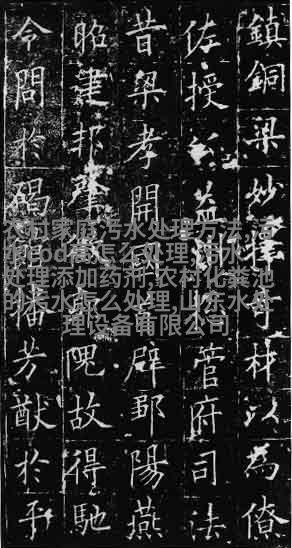 鎮銅梁妙擇奇材以為僚
佐授公益州管府司法
昔梁孝開國首辟鄒陽燕
昭建邦肇隗故得馳
令問於碣館播芳猷於平
农村家庭污水处理方法,污
水cod高怎么处理,污水
处理添加药剂,农村化粪池
的污水怎么处理,山东水处
理设备有限公司